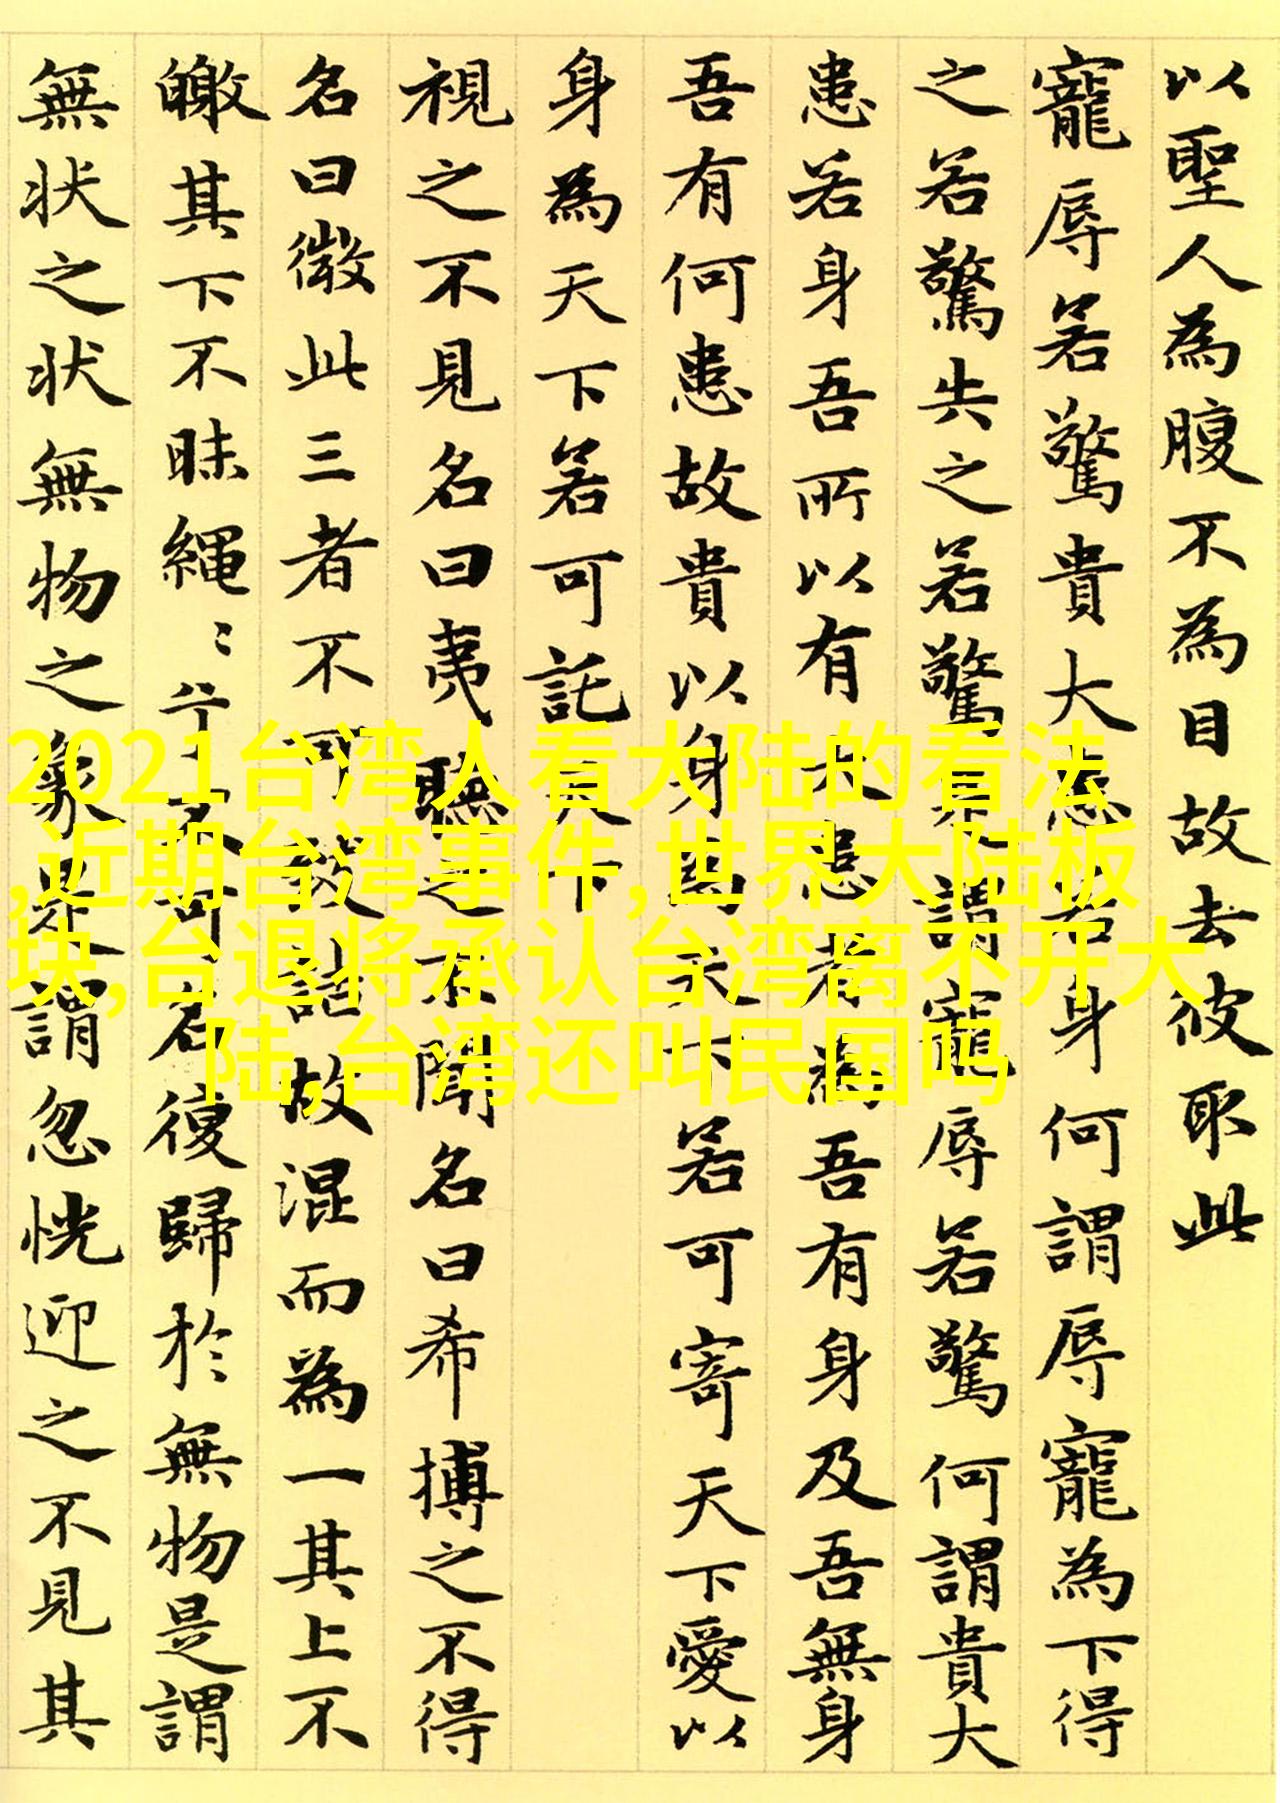 以聖人為腹不為目故去彼取此
寵辱若驚貴大患若身何謂辱寵為下得
之若驚失之若驚是謂寵辱若驚何謂貴大
患若身吾所以有大患者為吾有身及吾無身
吾有何患故貴以身為天下若可寄天下愛以
身為天下若可託天下
視之不見名曰夷聽之不聞名曰希搏之不得
名曰微此三者不可致詰故混而為一其上不
皦其下不昧繩〻兮不可名復歸於無物是謂
無状之状無物之象是謂忽恍迎之不見其
2021台湾人看大陆的看法
,近期台湾事件,世界大陆板
块,台退将承认台湾离不开大
陆,台湾还叫民国吗